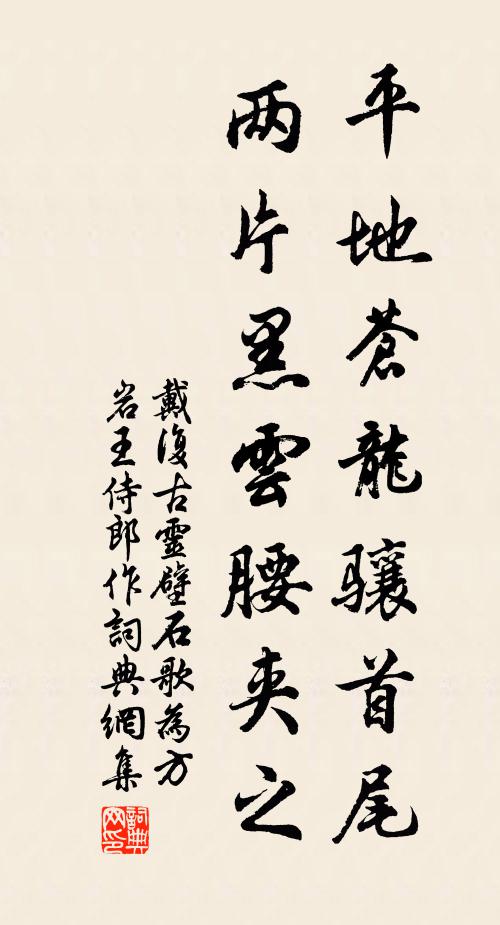 平地蒼龍驤首尾
两片黑雲腰夹之
戴復古靈壁石歌為方
岩王侍郎作詞典網集
詞典网印